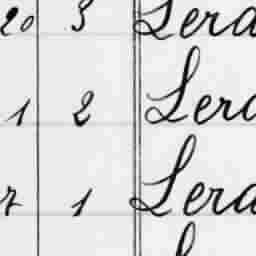 20 3 Lera
1 2 Lera
7 1 Lera